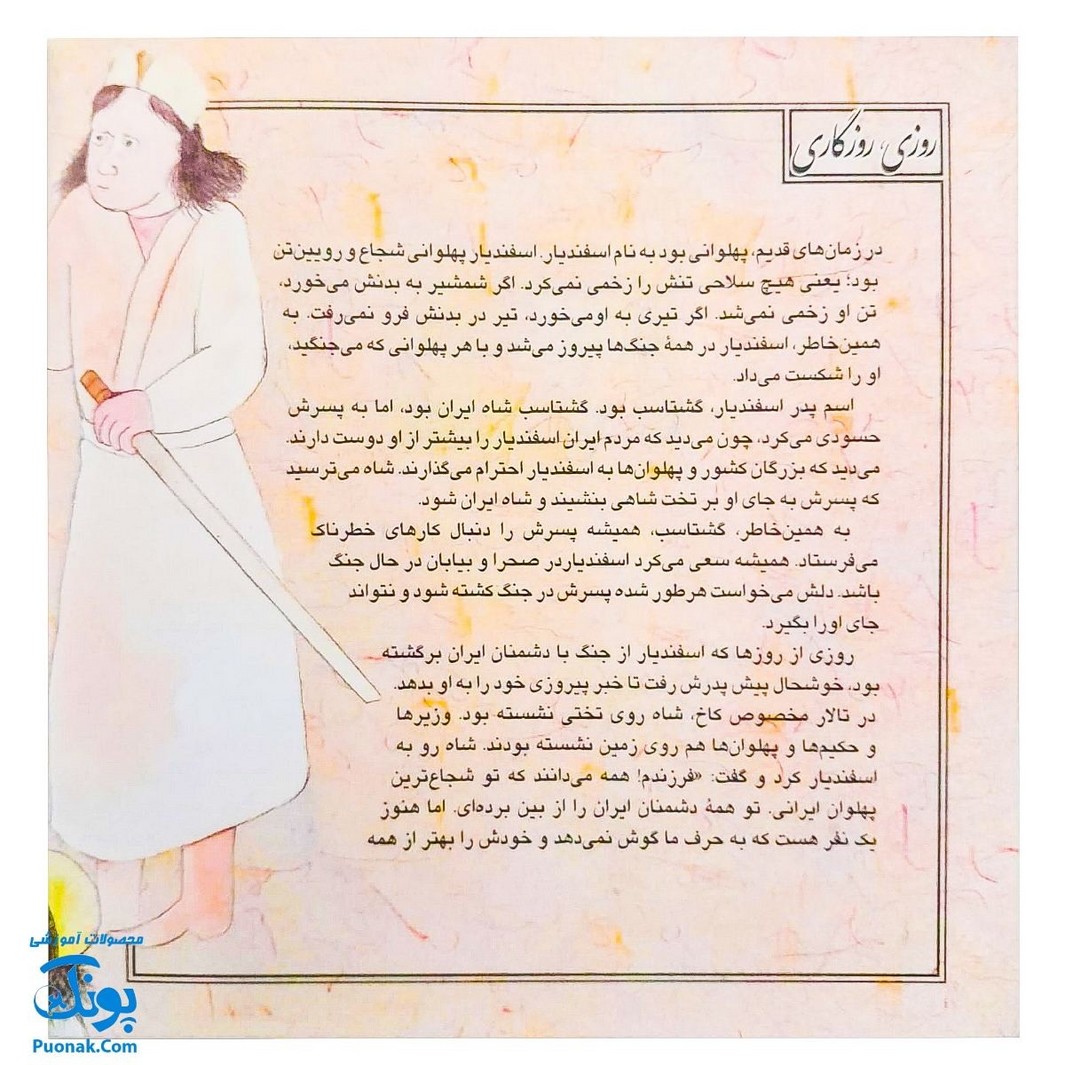 روزی، روزگاری
در زمان‌های قدیم، پهلوانی بود به نام اسفندیار. اسفندیار پهلوانی شجاع و رویین‌تن
بود؛ یعنی هیچ سلاحی تنش را زخمی نمی‌کرد. اگر شمشیر به بدنش می‌خورد،
تن او زخمی نمی‌شد. اگر تیری به اومی‌خورد، تیر در بدنش فرو نمی‌رفت. به
همین‌خاطر، اسفندیار در همهٔ جنگ‌ها پیروز می‌شد و با هر پهلوانی که می‌جنگید،
او را شکست می‌داد.
اسم پدر اسفندیار، گشتاسب بود. گشتاسب شاه ایران بود، اما به پسرش
حسودی می‌کرد، چون می‌دید که مردم ایران اسفندیار را بیشتر از او دوست دارند.
می‌دید که بزرگان کشور و پهلوان‌ها به اسفندیار احترام می‌گذارند. شاه می‌ترسید
که پسرش به جای او بر تخت شاهی بنشیند و شاه ایران شود.
به همین‌خاطر، گشتاسب، همیشه پسرش را دنبال کارهای خطرناک
می‌فرستاد. همیشه سعی می‌کرد اسفندیاردر صحرا و بیابان در حال جنگ
باشد. دلش می‌خواست هرطور شده پسرش در جنگ کشته شود و نتواند
جای اورا بگیرد.
روزی از روزها که اسفندیار از جنگ با دشمنان ایران برگشته
بود، خوشحال پیش پدرش رفت تا خبر پیروزی خود را به او بدهد.
در تالار مخصوص کاخ، شاه روی تختی نشسته بود. وزیرها
و حکیم‌ها و پهلوان‌ها هم روی زمین نشسته بودند. شاه رو به
اسفندیار کرد و گفت: «فرزندم! همه می‌دانند که تو شجاع‌ترین
پهلوان ایرانی. تو همهٔ دشمنان ایران را از بین برده‌ای. اما هنوز
یک نفر هست که به حرف ما گوش نمی‌دهد و خودش را بهتر از همه
محصولات آموزشی
پونک
Puonak.Com